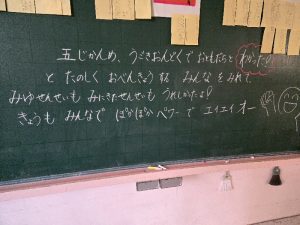 五じかんめ、うごきおんどくでおともだちと わかった!
と たのしく おべんきょう する みんなをみれて
みゆせんせいも みにきたせんせいも うれしかったよ!
きょうも みんなで ぽかぽかパワーで エイエイオー